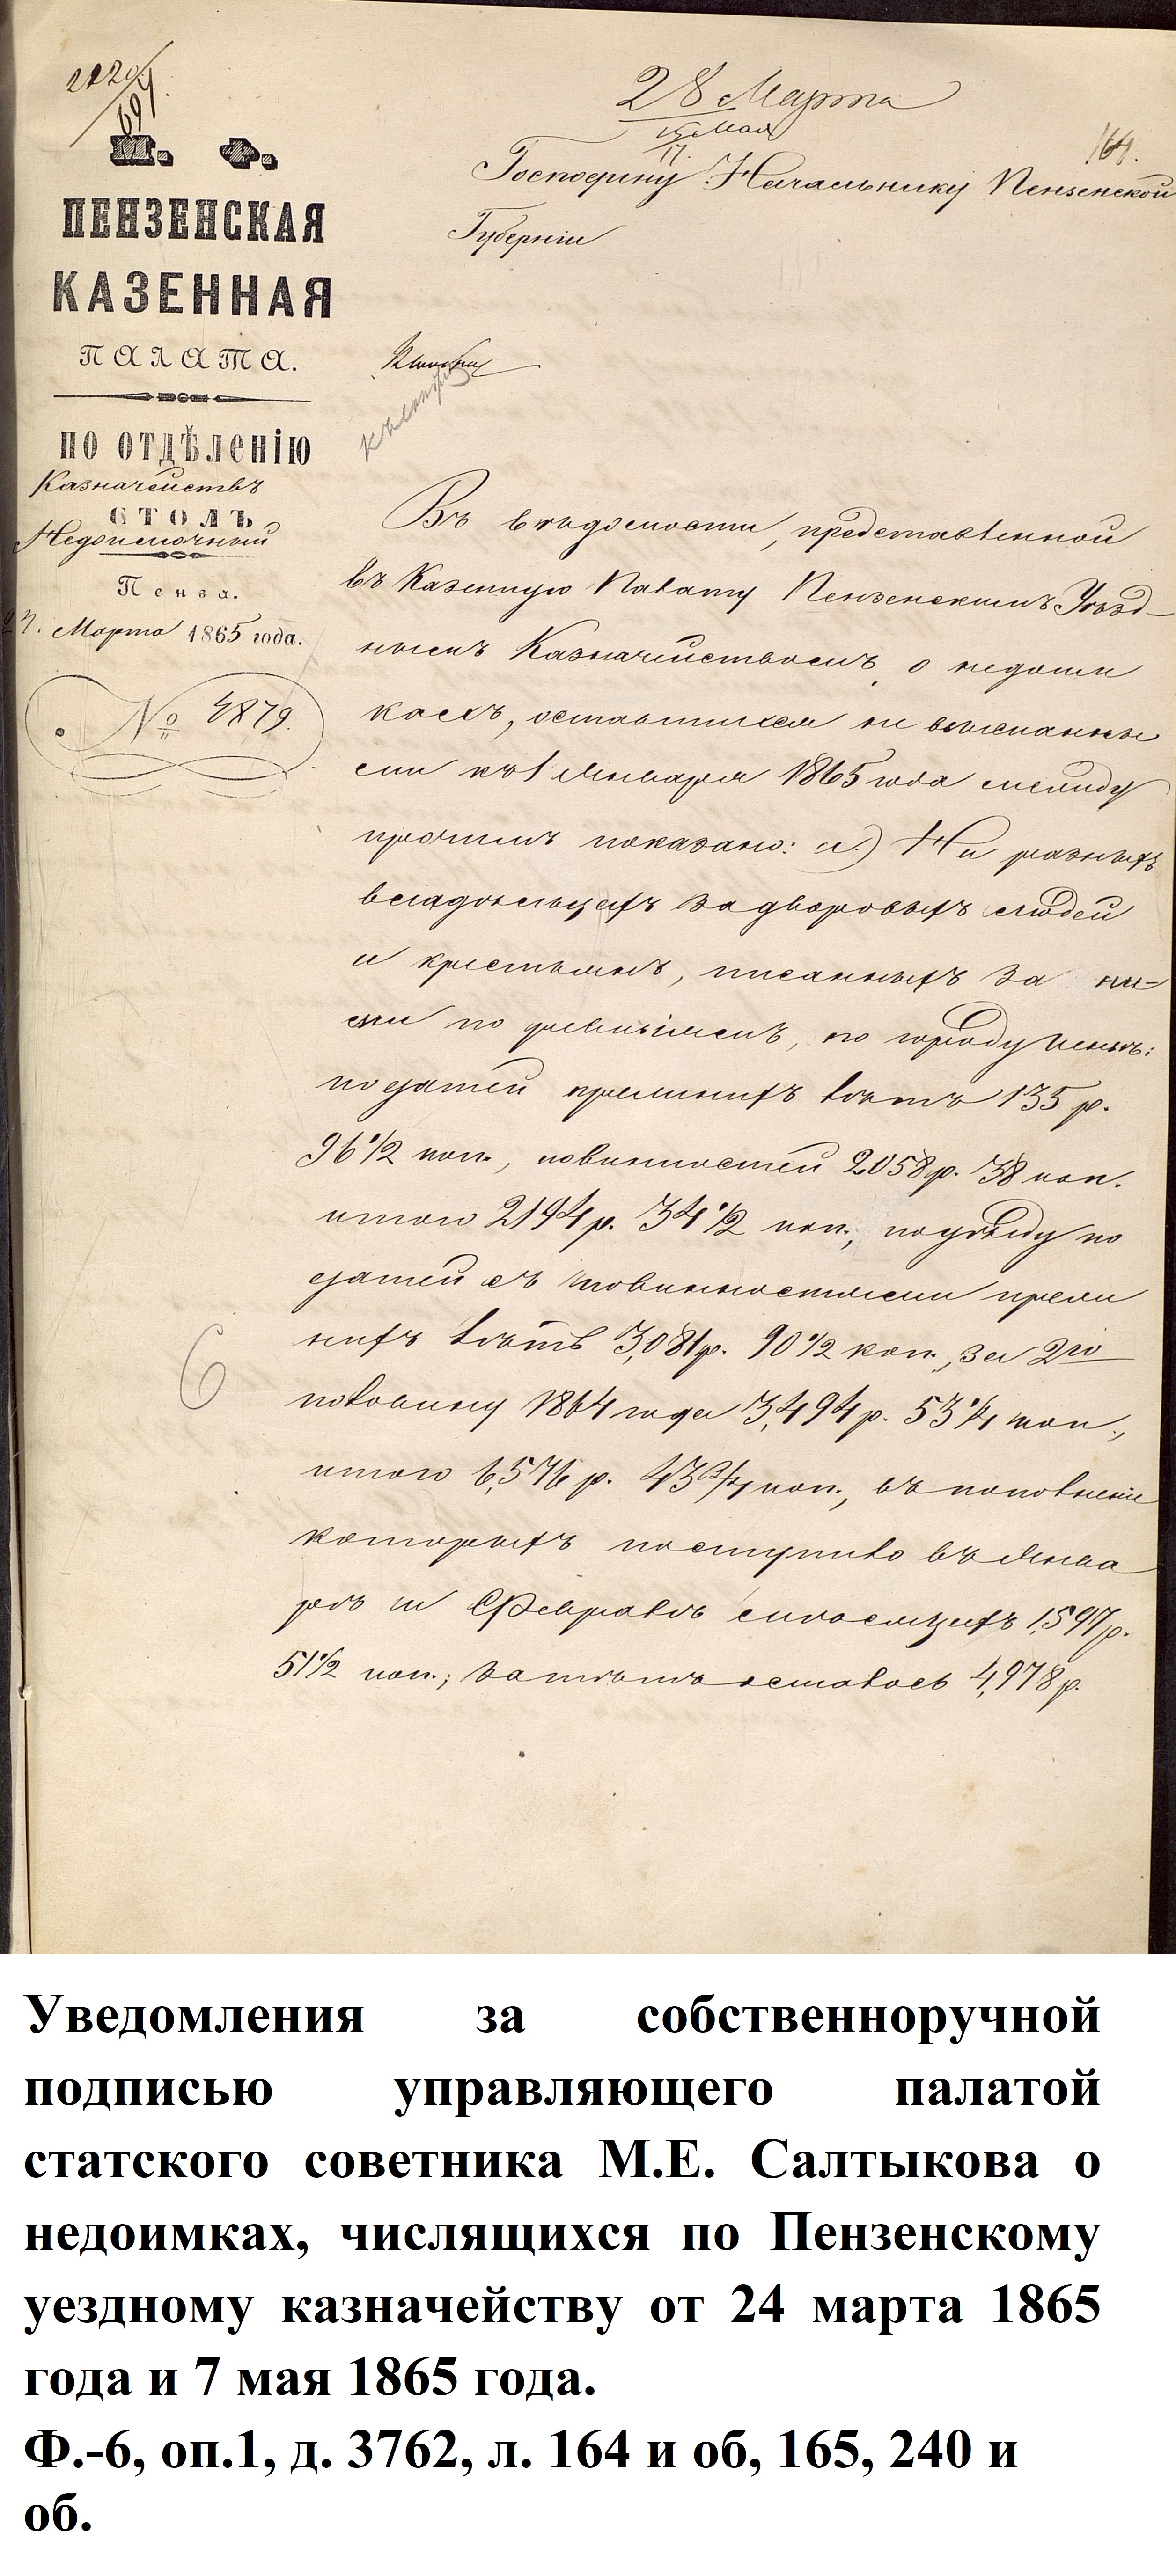 2120/694
М. Ф.
ПЕНЗЕНСКАЯ
КАЗЕННАЯ
ПАЛАТА.
ПО ОТДѢЛЕНІЮ
Казначействъ
СТОЛЪ
Недоимочный
Пенза.
Марта 1865 года.
№ 4879.
28 Марта
15 Мая
164.
Господину Начальнику Пензенской
Губерніи
Въ вѣдомости, представленной
въ Казенную Палату Пензенскимъ Уѣзд-
нымъ Казначействомъ, о недоим
кахъ, оставшихся не взысканны
ми къ 1 Января 1865 года между
прочимъ показано: а.) На разныхъ
владѣльцахъ за дворовыхъ людей
и крестьянъ, писанныхъ за ни-
ми по ревизіямъ, по городу Пензѣ:
податей прежнихъ лѣтъ 135 р.
96 1/2 коп., повинностей 2058 р. 38 коп.
итого 2194 р. 34 1/2 коп., по уѣзду по
датей съ повинностями преж
нихъ лѣтъ 3,081 р. 90 1/2 коп., за 2ю
половину 1864 года 3,494 р. 53 1/4 коп.,
итого 6,576 р. 43 3/4 коп., въ пополненіе
которыхъ поступило въ Янва
рѣ и Февралѣ сего 1,597 р.
51 1/2 коп.; затѣмъ осталось 4,978 р.
6
Уведомления за собственноручной
подписью управляющего палатой
статского советника М.Е. Салтыкова о
недоимках, числящихся по Пензенскому
уездному казначейству от 24 марта 1865
года и 7 мая 1865 года.
Ф.-6, оп.1, д. 3762, л. 164 и об, 165, 240 и
об.